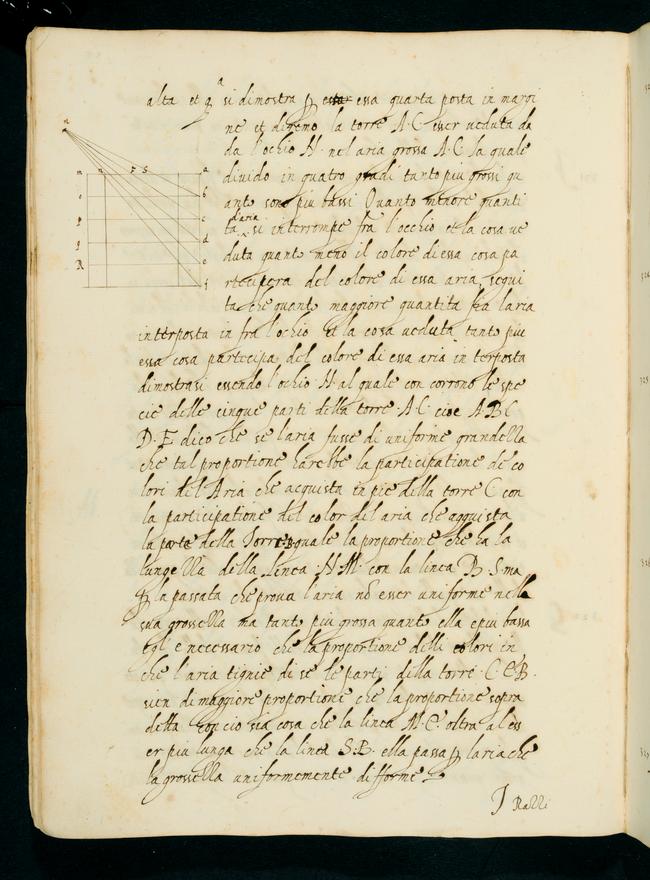 alta et qª si dimostra p essa quarta posta in margi
ne et diremo la torre A·C esser ueduta da
da l'ochio H· nel aria grossa A·C la quale
diuido in quatro gradi tanto piu grossi qu
anto sono piu bassi Quanto minore quanti
ta d'aria si interrompe fra l'occhio et la cosa ue
duta quanto meno il colore di essa cosa pa
rtecipera del colore di essa aria, sequi
ta che quanto maggiore quantita fia laria
interposta in fra l'ochio et la cosa ueduta tanto piu
essa cosa partecipa del colore di essa aria in terposta
dimostrasi essendo l'ochio H· al quale con corrono le spe
cie delle cinque parti della torre A·C· cioe A·B C
D·E dico che se l'aria fusse di uniforme grandella
che tal proportione harebbe la participatione de co
lori del Aria che acquista in pie della torre C con
la participatione del color del aria che aqquista
la parte della Torre B quale la proportione che ha la
lungella della linea ·H·M· con la linea B·S· ma
p la passata che proua l'aria nõ esser uniforme nella
sua grossella ma tanto piu grossa quanto ella e piu bassa
egl e necessario che la proportione delli colori in
che l'aria tignie di se le parti della torre ·C e B·
sien di maggiore proportione che la proportione sopra
detta con cio sia cosa che la linea M·C· oltra al ess
er piu lunga che la linea S·B· ella passa p laria che
la grossella uniformemente difforme
I Razzi
n
m n r s a
o b
p c
q d
R e
f